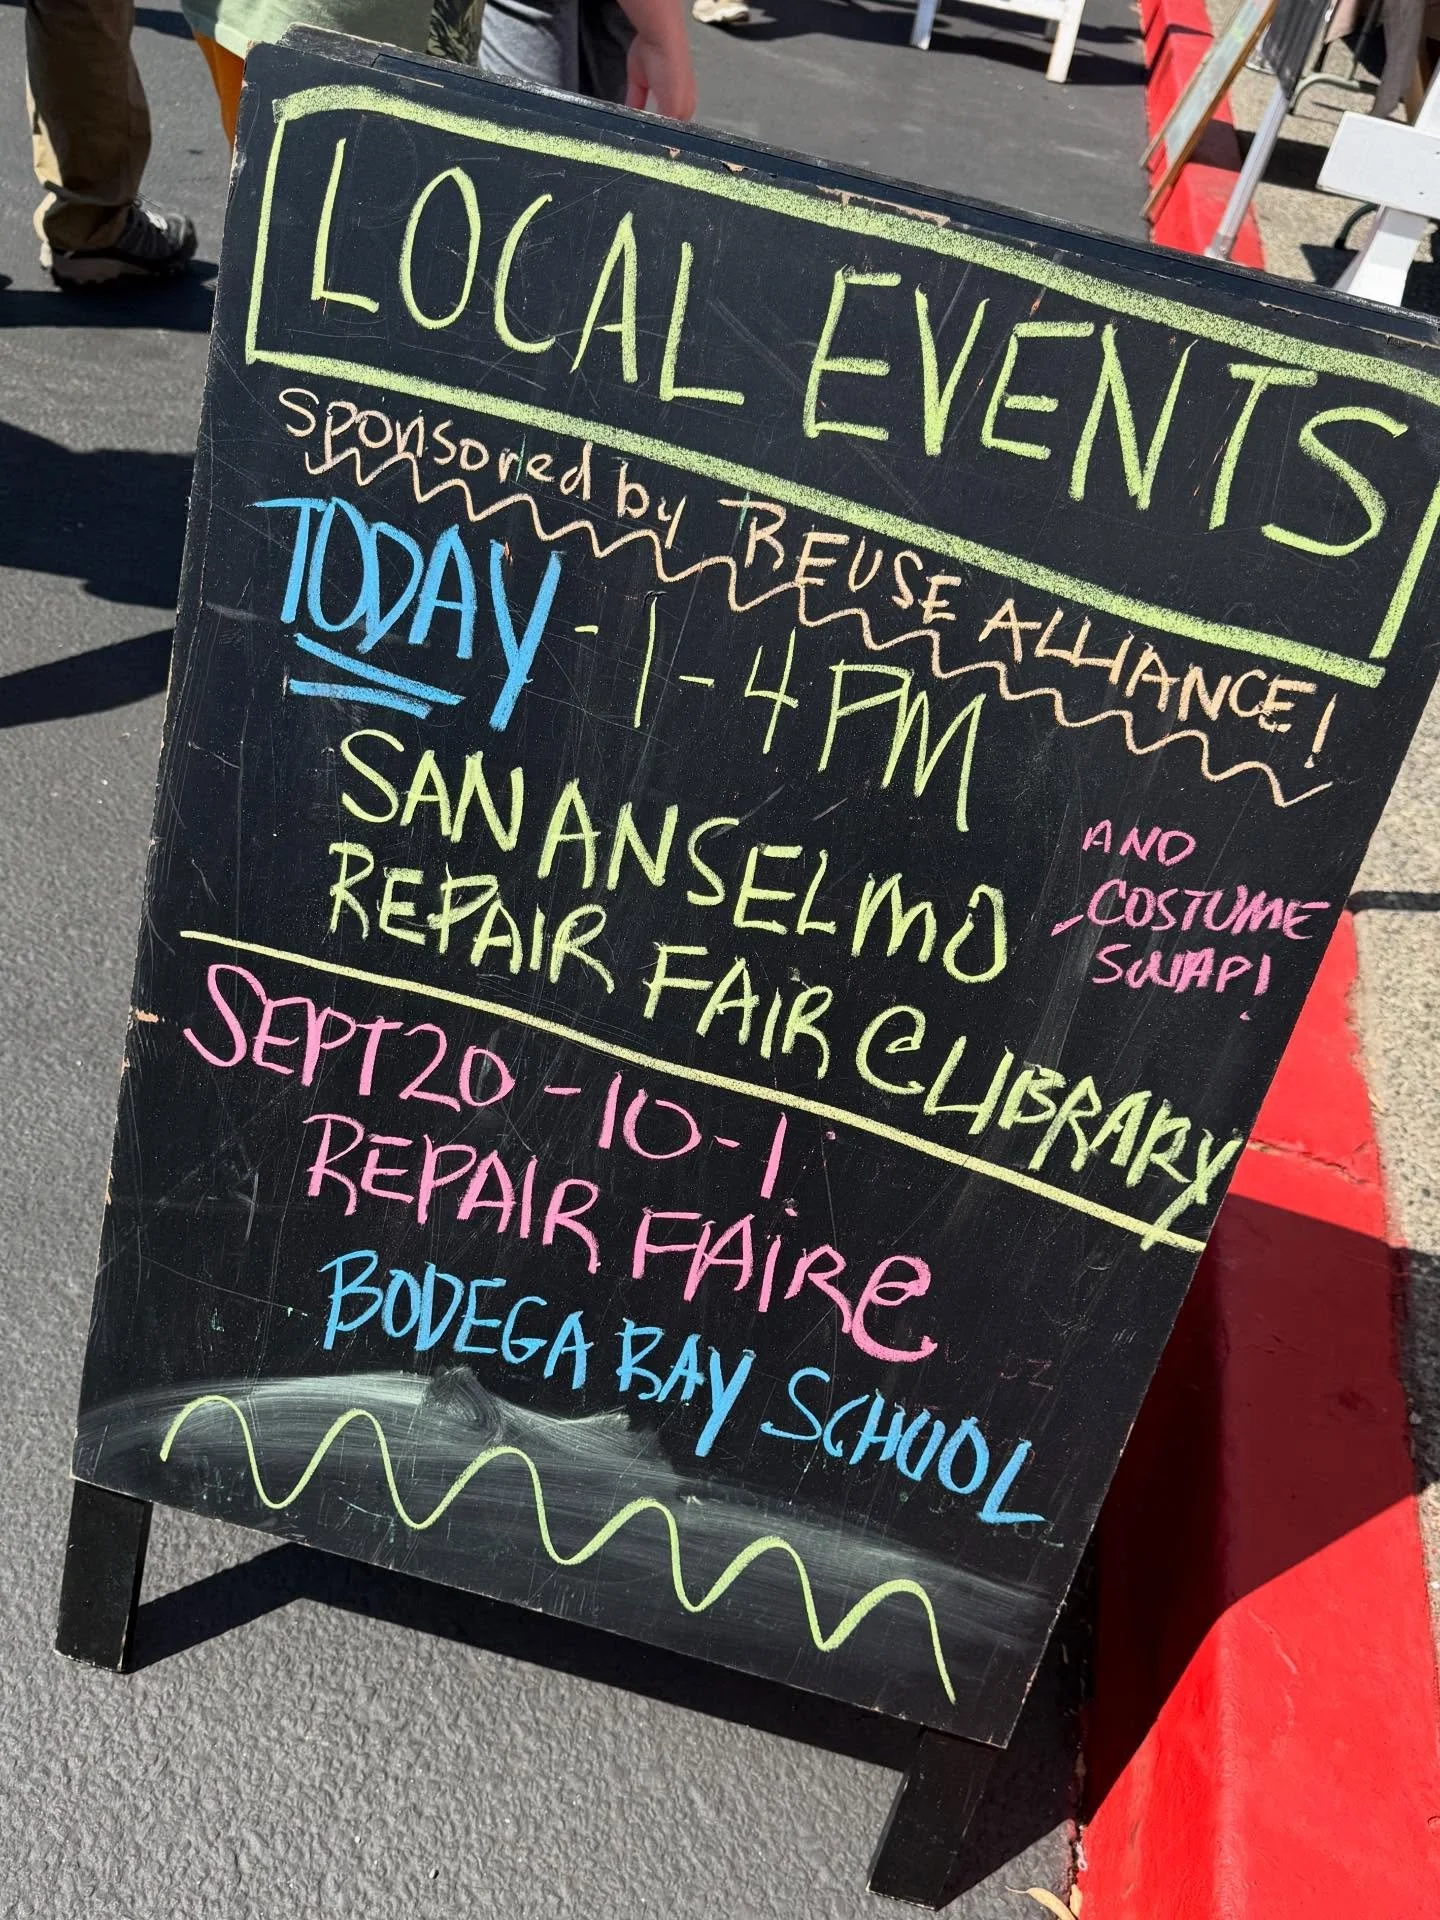 LOCAL EVENTS
Sponsored by REUSE ALLIANCE!
TODAY - 1-4 PM
SAN ANSELMO
REPAIR FAIR @ LIBRARY
AND
COSTUME
SWAP!
SEPT 20 - 10-1
REPAIR FAIRE
BODEGA BAY SCHOOL